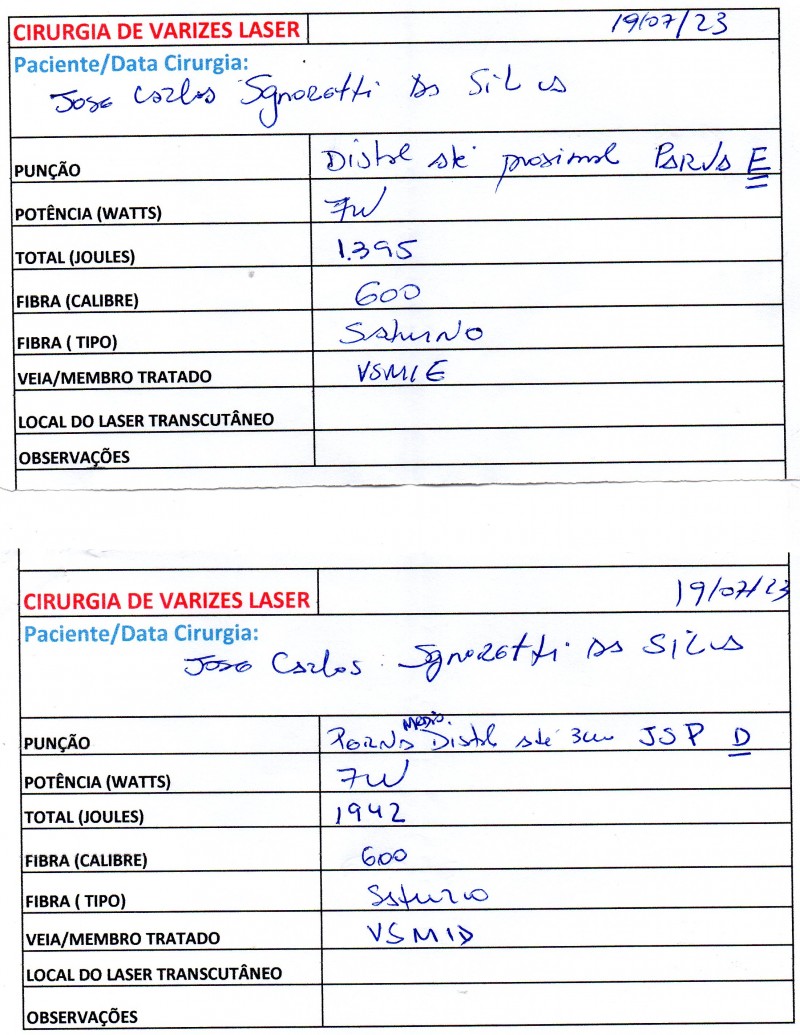 CIRURGIA DE VARIZES LASER 19/07/23
Paciente/Data Cirurgia:
Jose Carlos Sgnoretti da Silva
PUNÇÃO Distal até proximal Perna E
POTÊNCIA (WATTS) 7W
TOTAL (JOULES) 1.395
FIBRA (CALIBRE) 600
FIBRA ( TIPO) Saturno
VEIA/MEMBRO TRATADO VSMIE
LOCAL DO LASER TRANSCUTÂNEO
OBSERVAÇÕES
CIRURGIA DE VARIZES LASER 19/07/23
Paciente/Data Cirurgia:
Jose Carlos Sgnoretti da Silva
PUNÇÃO Perna médio. Distal até 3cm JSP D
POTÊNCIA (WATTS) 7W
TOTAL (JOULES) 1942
FIBRA (CALIBRE) 600
FIBRA ( TIPO) Saturno
VEIA/MEMBRO TRATADO VSMID
LOCAL DO LASER TRANSCUTÂNEO
OBSERVAÇÕES